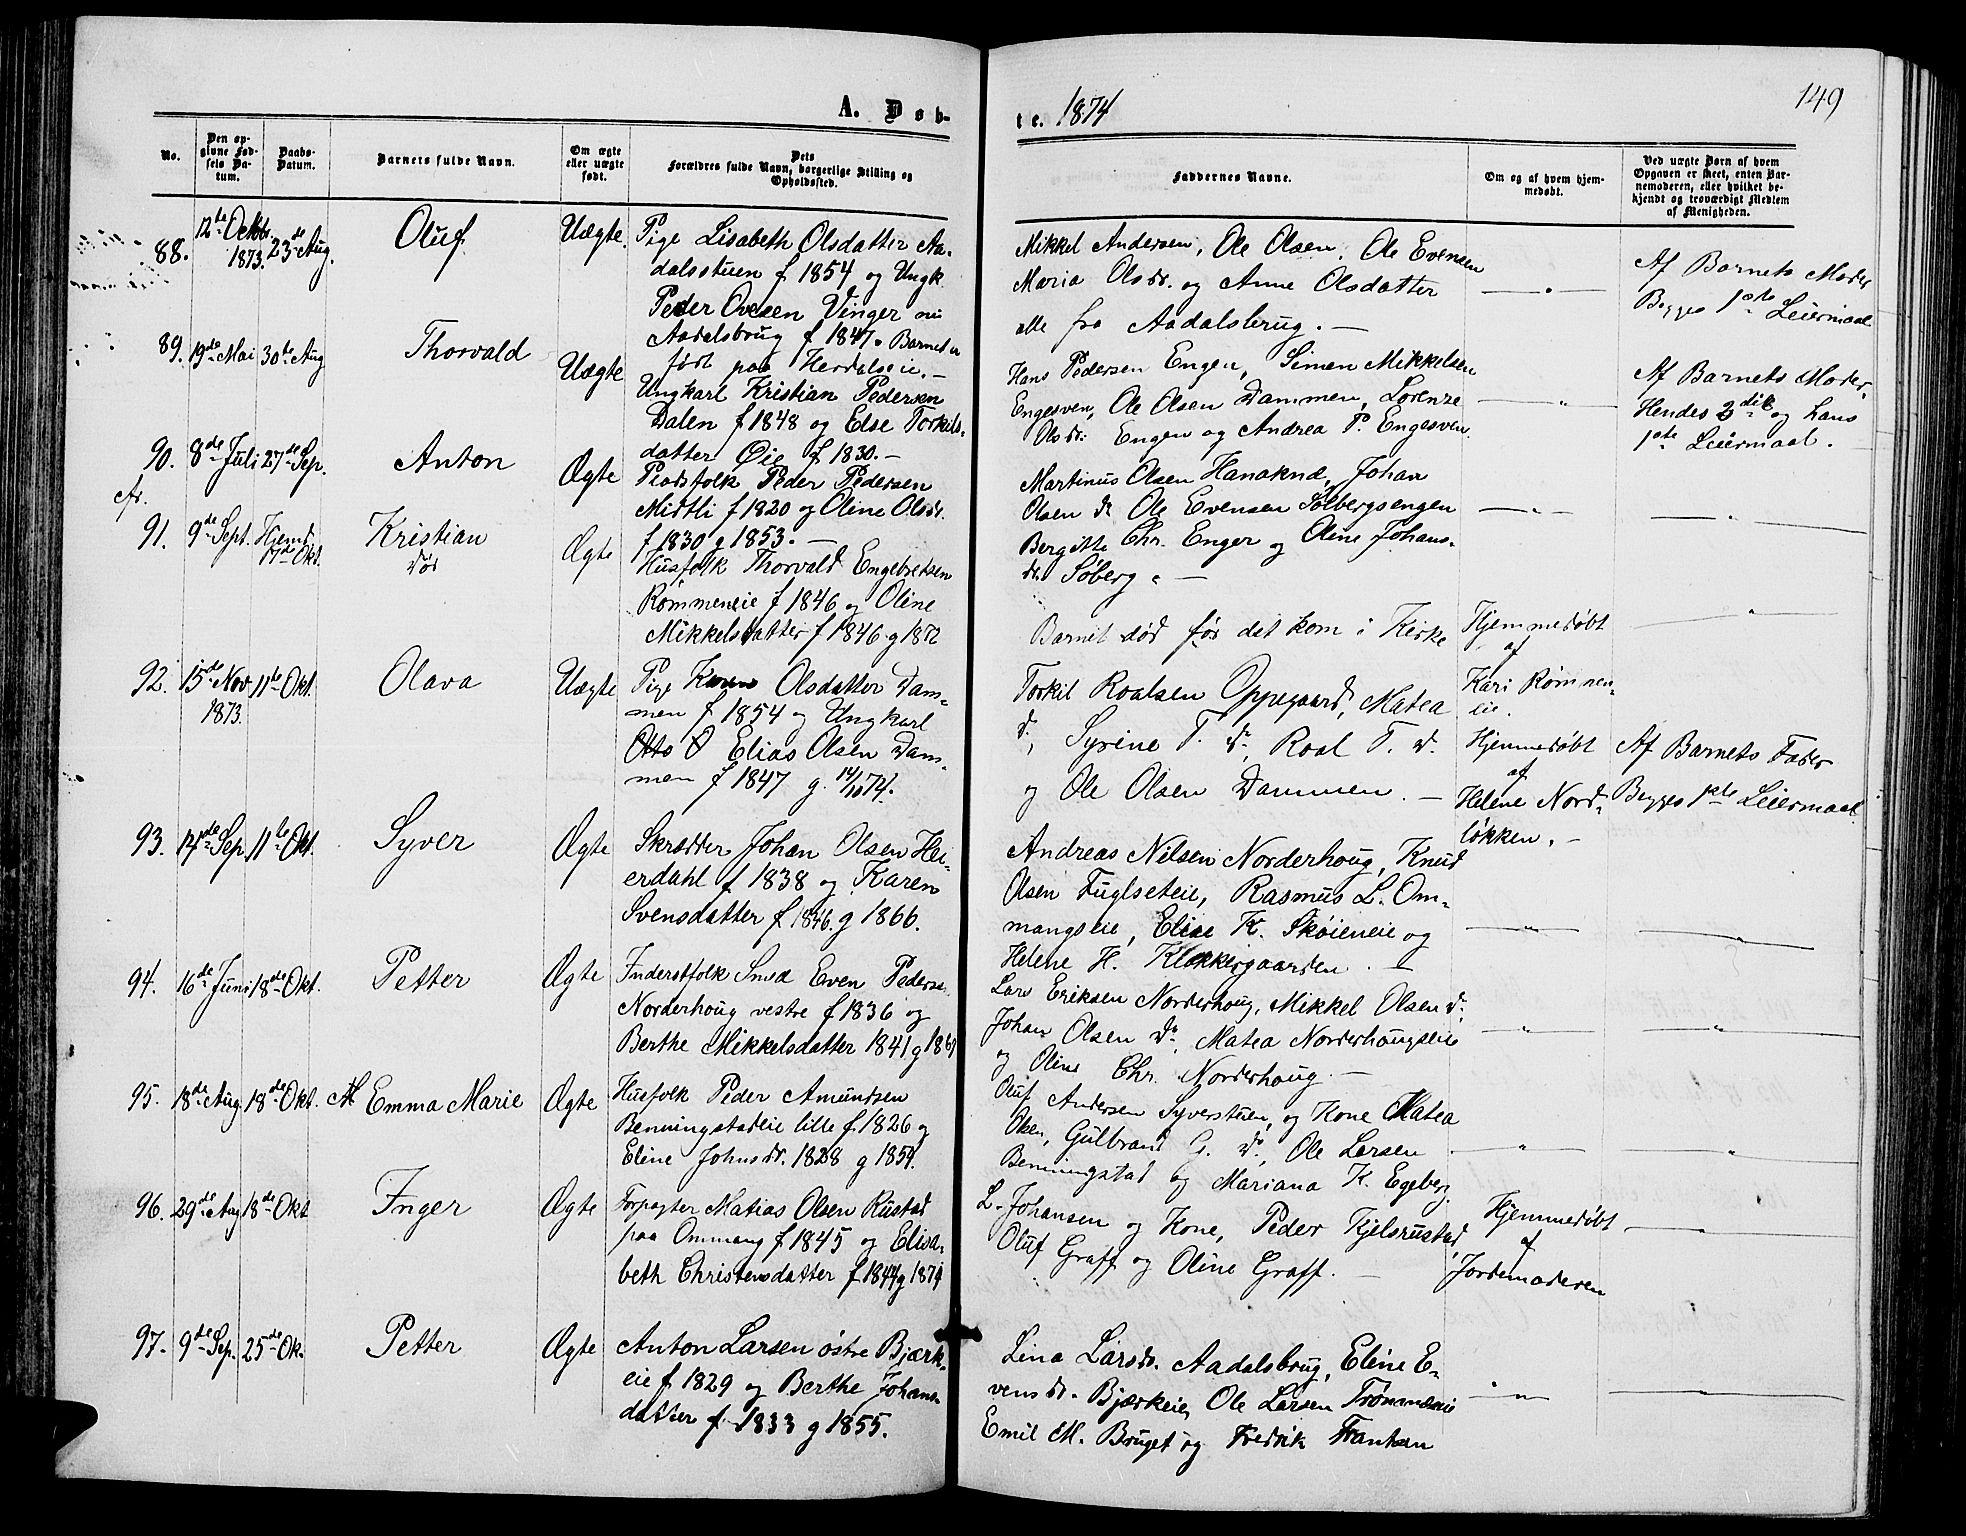 149
A. Døb-
te. 1874
No.
Den opgivne Fødsels Datum.
Daabs-Datum.
Barnets fulde Navn.
Om ægte eller uægte født.
Dets Forældres fulde Navn, borgerlige Stilling og Opholdssted.
Faddernes Navne.
Om og af hvem hjemmedøbt.
Ved uægte Børn af hvem Opgaven er skeet, enten Barnemoderen, eller hvilket bekjendt og troværdigt Medlem af Menigheden.
88. 12te Oktbr 1873. 23de Aug. Oluf Uægte.
Pige Lisabeth Olsdatter Aa-
dalsstuen f 1854 og Ungk.
Peder Ovesen Vinger nu
Aadalsbrug f 1847. Barnet er
født paa Herdalseie.-
Mikkel Andersen, Ole Olsen, Ole Evensen
Maria Olsdr. og Anne Olsdatter
alle fra Aadalsbrug.-
Af Barnets Moder
Begges 1ste Leiermaal
89. 19de Mai 30te Aug Thorvald Uægte
Ungkarl Kristian Pedersen
Dalen f 1848 og Else Torkels-
datter Øie f 1830.-
Hans Pedersen Engen, Simen Mikkelsen
Engesven, Ole Olsen Dammen, Lorenze
Olsdr. Engen og Andrea P. Engesven.
Af Barnets Moder,
Hendes 2det og hans
1ste Leiermaal.
90. 8de Juli 27de Sep. Anton Ægte
Pladsfolk Peder Pedersen
Midtli f 1820 og Oline Olsdr.
f 1830 g 1853.-
Martinus Olsen Hanaknæ, Johan
Olsen do Ole Evensen Solbergsengen
Bergitte Chr. Enger og Oline Johans-
dr. Søberg.-
91. 9de Sept. Hjemd. 17de Okt. Kristian Ægte
Død
Husfolk Thorvald Engebretsen
Rømmeneie f 1846 og Oline
Mikkelsdatter f 1846 g 1872
Barnet død før det kom i Kirke
Hjemmedøbt
af
Kari Rømmen-
eie.
92. 15de Nov 1873. 11te Okt. Olava Uægte
Pige Karen Olsdatter Dam-
men f 1854 og Ungkarl
Otto O Elias Olsen Dam-
men f 1847 g. 14/10 74.
Torkil Roalsen Oppegaard, Matea
do, Syrine T. do. Roal T. do.
og Ole Olsen Dammen.-
Hjemmedøbt
af
Helene Nord-
løkken.-
Af Barnets Fader
Begges 1ste Leiermaal
93. 14de Sep. 11te Okt. Syver Ægte
Skrædder Johan Olsen Hei-
erdahl f 1838 og Karen
Svensdatter f 1846. g 1866.
Andreas Nilsen Norderhoug, Knud
Olsen Fuglseteie, Rasmus L. Om-
mangseie, Elise K. Skøieneie og
Helene H. Klokkergaarden.
94. 16de Juni 18de Okt. Petter Ægte
Inderstfolk Smed Even Peders.
Norderhoug vestre f 1836 og
Berthe Mikkelsdatter 1841 g 1861
Lars Eriksen Norderhoug, Mikkel Olsen do.
Johan Olsen do, Matea Norderhougseie
og Oline Chr. Norderhoug.-
95. 18de Aug. 18de Okt. M Emma Marie Ægte
Husfolk Peder Amundsen
Benningstadeie lille f 1826 og
Eline Johnsdr. 1828 g 1854.
Oluf Andersen Syverstuen, og Kone Matea
Olsen, Gulbrand G. do, Ole Larsen
Benningstad og Mariana K. Egeberg.
96. 29de Aug 18de Okt Inger Ægte
Forpagter Matias Olsen Rustad
paa Ommang f 1845 og Elisa-
beth Christensdatter f 1844 g 1874
L. Johansen og Kone, Peder Kjelsrustad
Oluf Graff og Oline Graff.
Hjemmedøbt
af
Jordemoderen
97. 9de Sep. 25de Ok. Petter Ægte
Anton Larsen østre Bjærk-
eie f 1829 og Berthe Johans-
datter f. 1833 g 1855.
Lina Larsdr. Aadalsbrug, Eline E-
vensdr. Bjærkeie, Ole Larsen Trømmeseie
Emil M. Bruget og Fredrik Frantsen